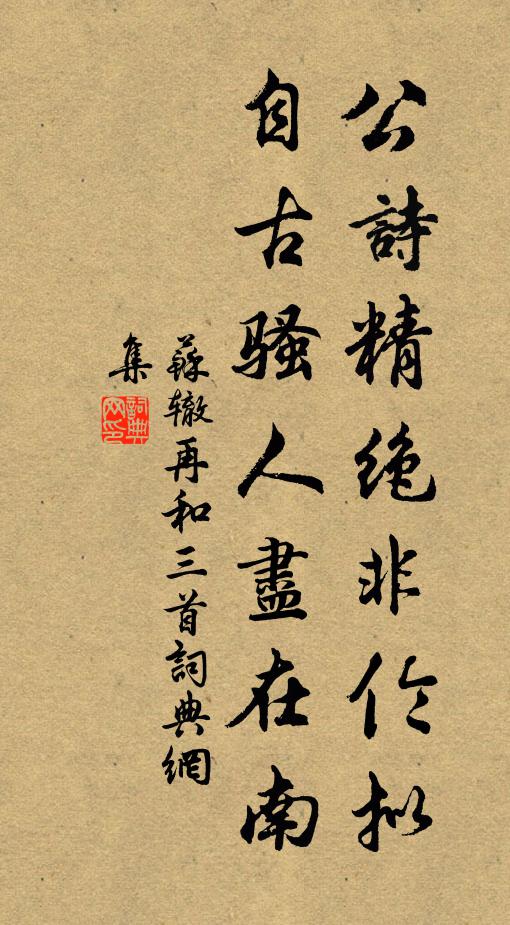 公詩精絶非伦拟
自古骚人盡在南
蘇辙再和三首詞典網
集
詞典网印